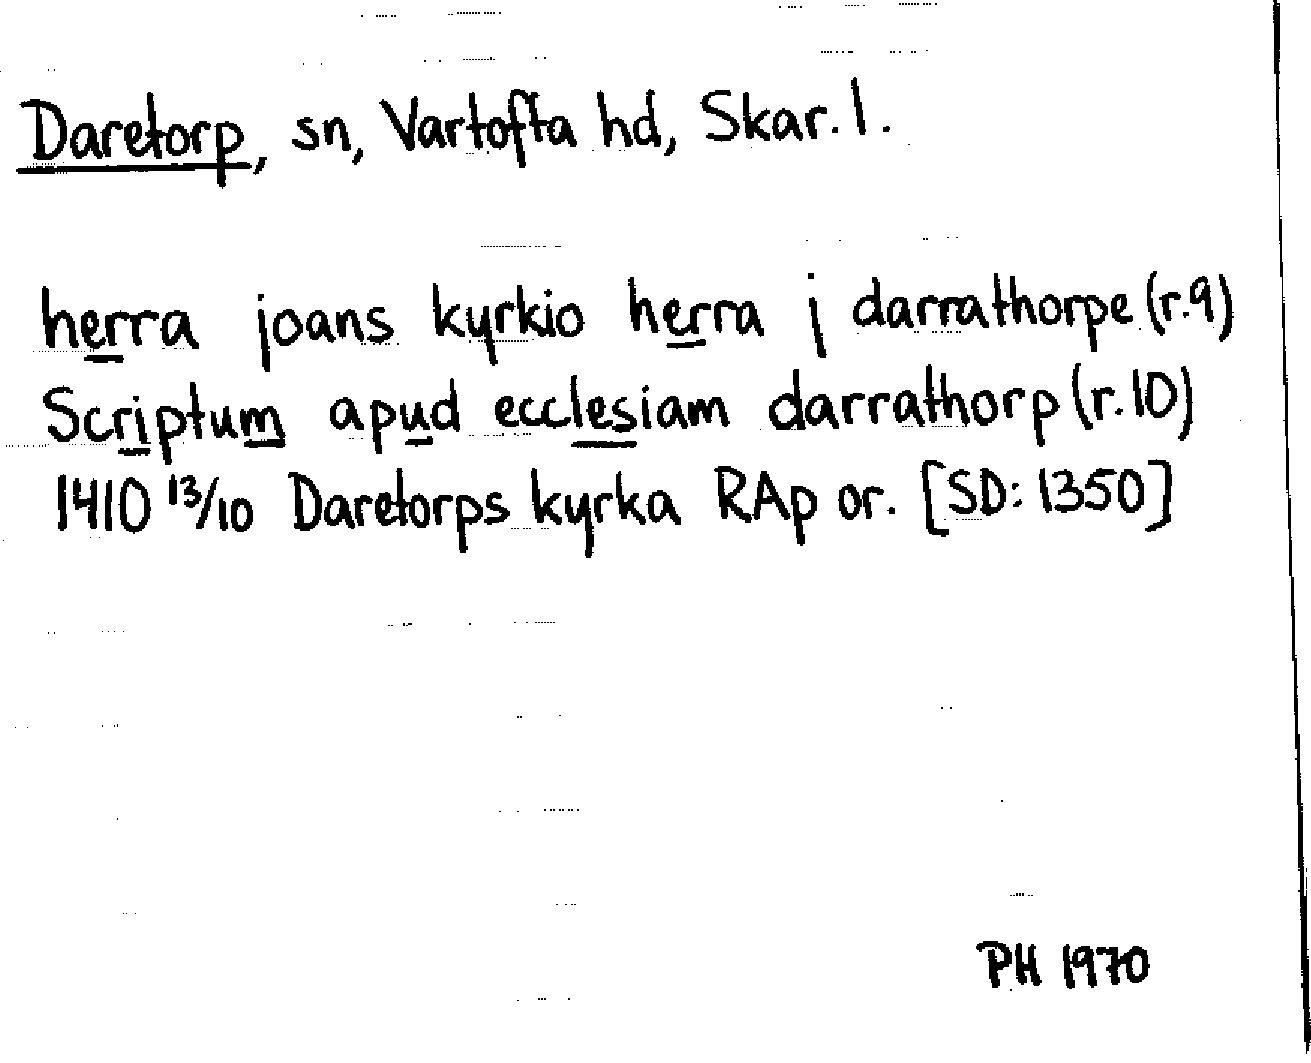 Daretorp, sn, Vartofta hd, Skar. l.
herra joans kyrkio herra j darrathorpe (r.9)
Scriptum apud ecclesiam darrathorp (r.10)
1410 13/10 Daretorps kyrka RAp or. [SD: 1350]
PH 1970